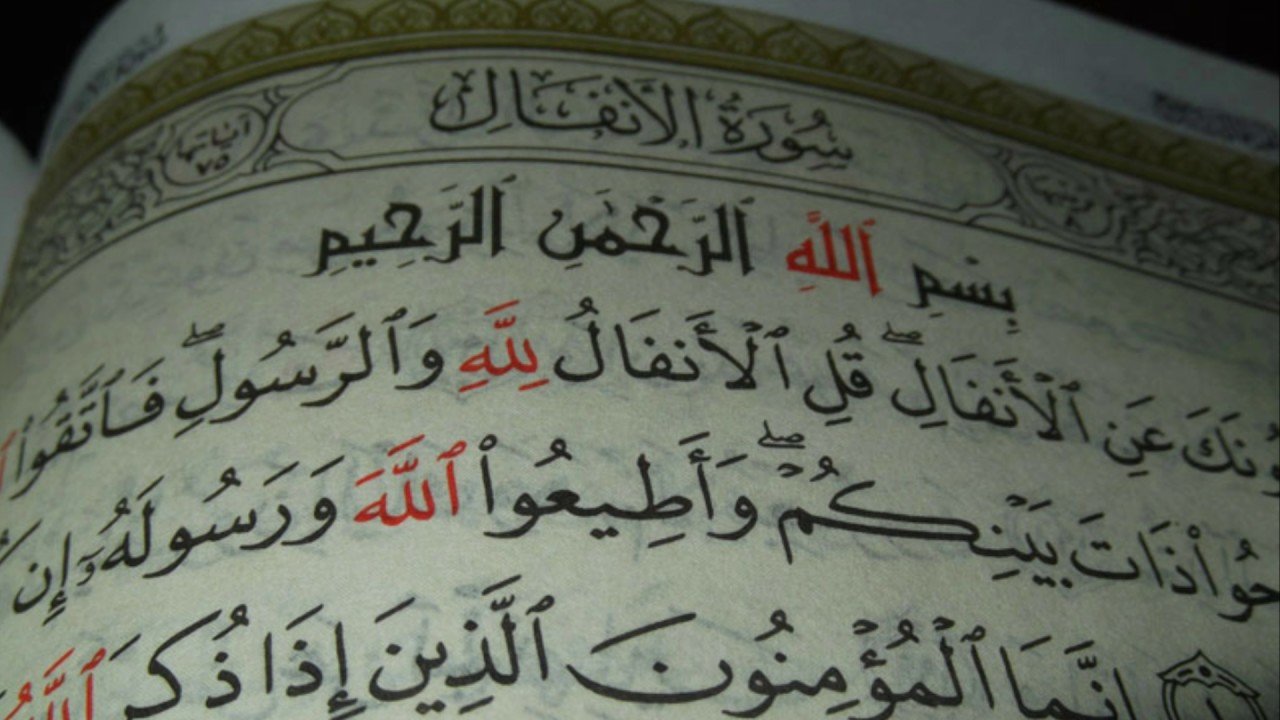 سُورَةُ الأَنفَالِ
آيَاتهَا ٧٥
بِسْمِ ٱللَّهِ ٱلرَّحْمَٰنِ ٱلرَّحِيمِ
ونَكَ عَنِ ٱلْأَنفَالِ ۖ قُلِ ٱلْأَنفَالُ لِلَّهِ وَٱلرَّسُولِ ۖ فَٱتَّقُوا۟
حُوا۟ ذَاتَ بَيْنِكُمْ ۖ وَأَطِيعُوا۟ ٱللَّهَ وَرَسُولَهُۥٓ إِن
١ إِنَّمَا ٱلْمُؤْمِنُونَ ٱلَّذِينَ إِذَا ذُكِرَ ٱللَّهُ